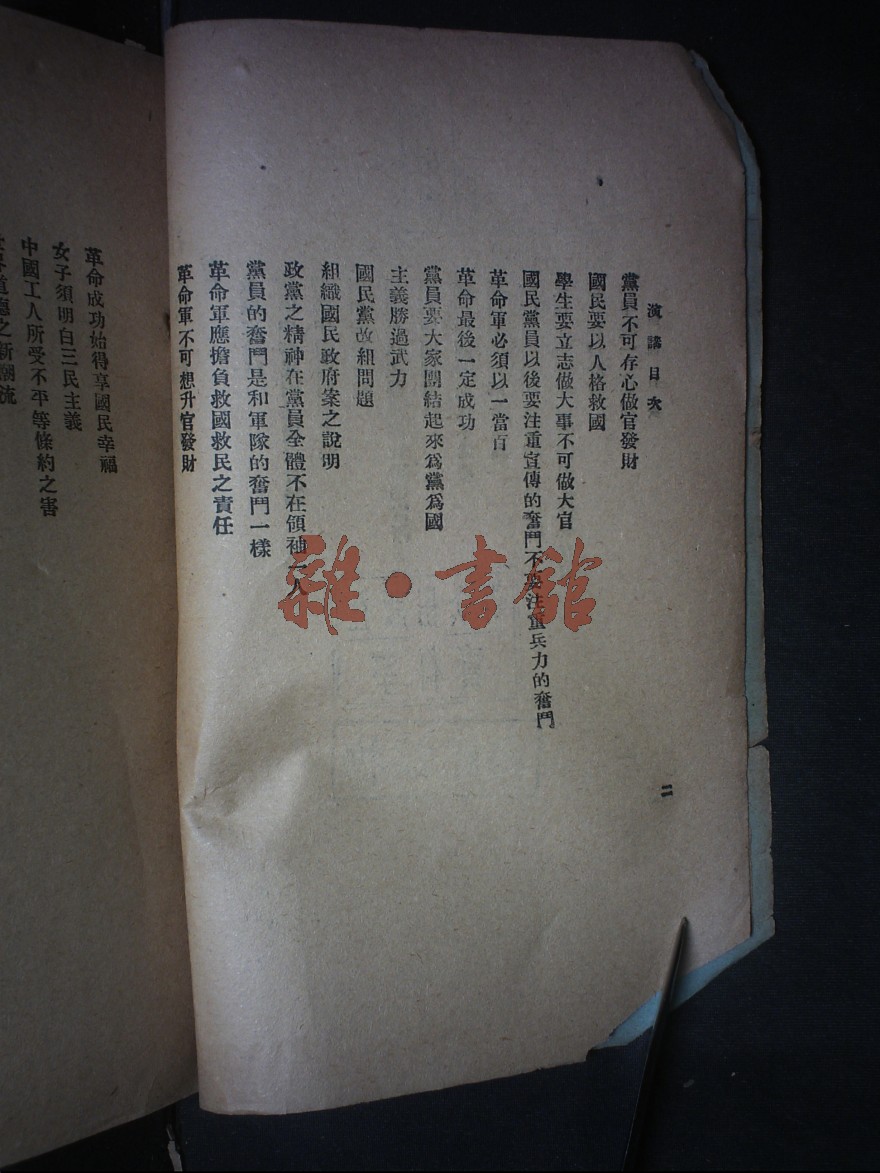 演講目次
二
黨員不可存心做官發財
國民要以人格救國
學生要立志做大事不可做大官
國民黨員以後要注重宣傳的奮鬥不要注重兵力的奮鬥
革命軍必須以一當百
革命最後一定成功
黨員要大家團結起來爲黨爲國
主義勝過武力
國民黨改組問題
組織國民政府案之說明
政黨之精神在黨員全體不在領袖一人
黨員的奮鬥是和軍隊的奮鬥一樣
革命軍應擔負救國救民之責任
革命軍不可想升官發財
革命成功始得享國民幸福
女子須明白三民主義
中國工人所受不平等條約之害
道德之新潮流
雜·書館